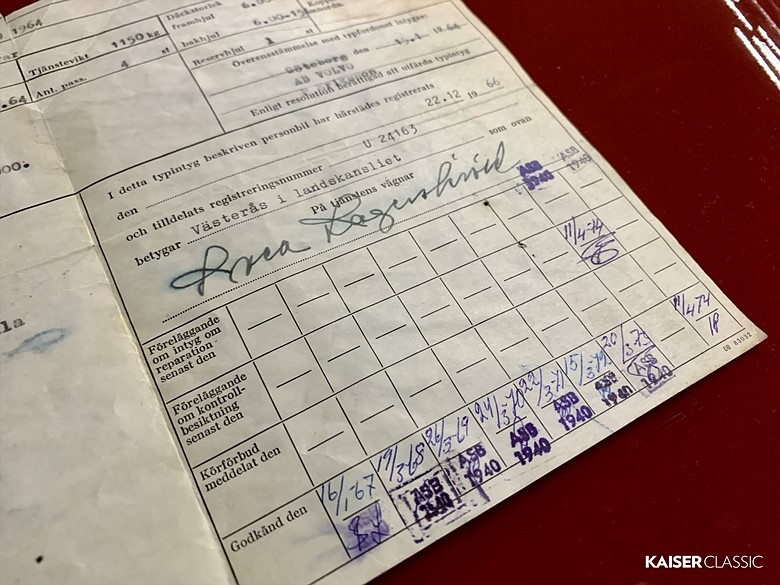 1964
Däckstorlek
framhjul
6.00-15
bakhjul
Tjänstevikt 1150 kg
Reservhjul 1 st
Ant. pass. 4 st
Överensstämmelse med typfordonet intygas:
Göteborg den 1964
AB VOLVO
Enligt resolution berättigad att utfärda typintyg
I detta typintyg beskriven personbil har härstädes registrerats
den 22.12 1966
och tilldelats registreringsnummer U 24163 som ovan
betygar Västerås i landskansliet
På tjänstens vägnar
ASB 1940
ASB 1940
11/4-74
Föreläggande
om intyg om
reparation
senast den
Föreläggande
om kontroll-
besiktning
senast den
11/4 74
Körförbud
meddelat den
Godkänd den
16/1-67
19/3-68
26/3-69
24/3-70
22/3-71
15/3-72
20/3-73
ASB
1940
ASB
1940
ASB
1940
ASB
1940
ASB
1940
ASB
1940
KAISER CLASSIC